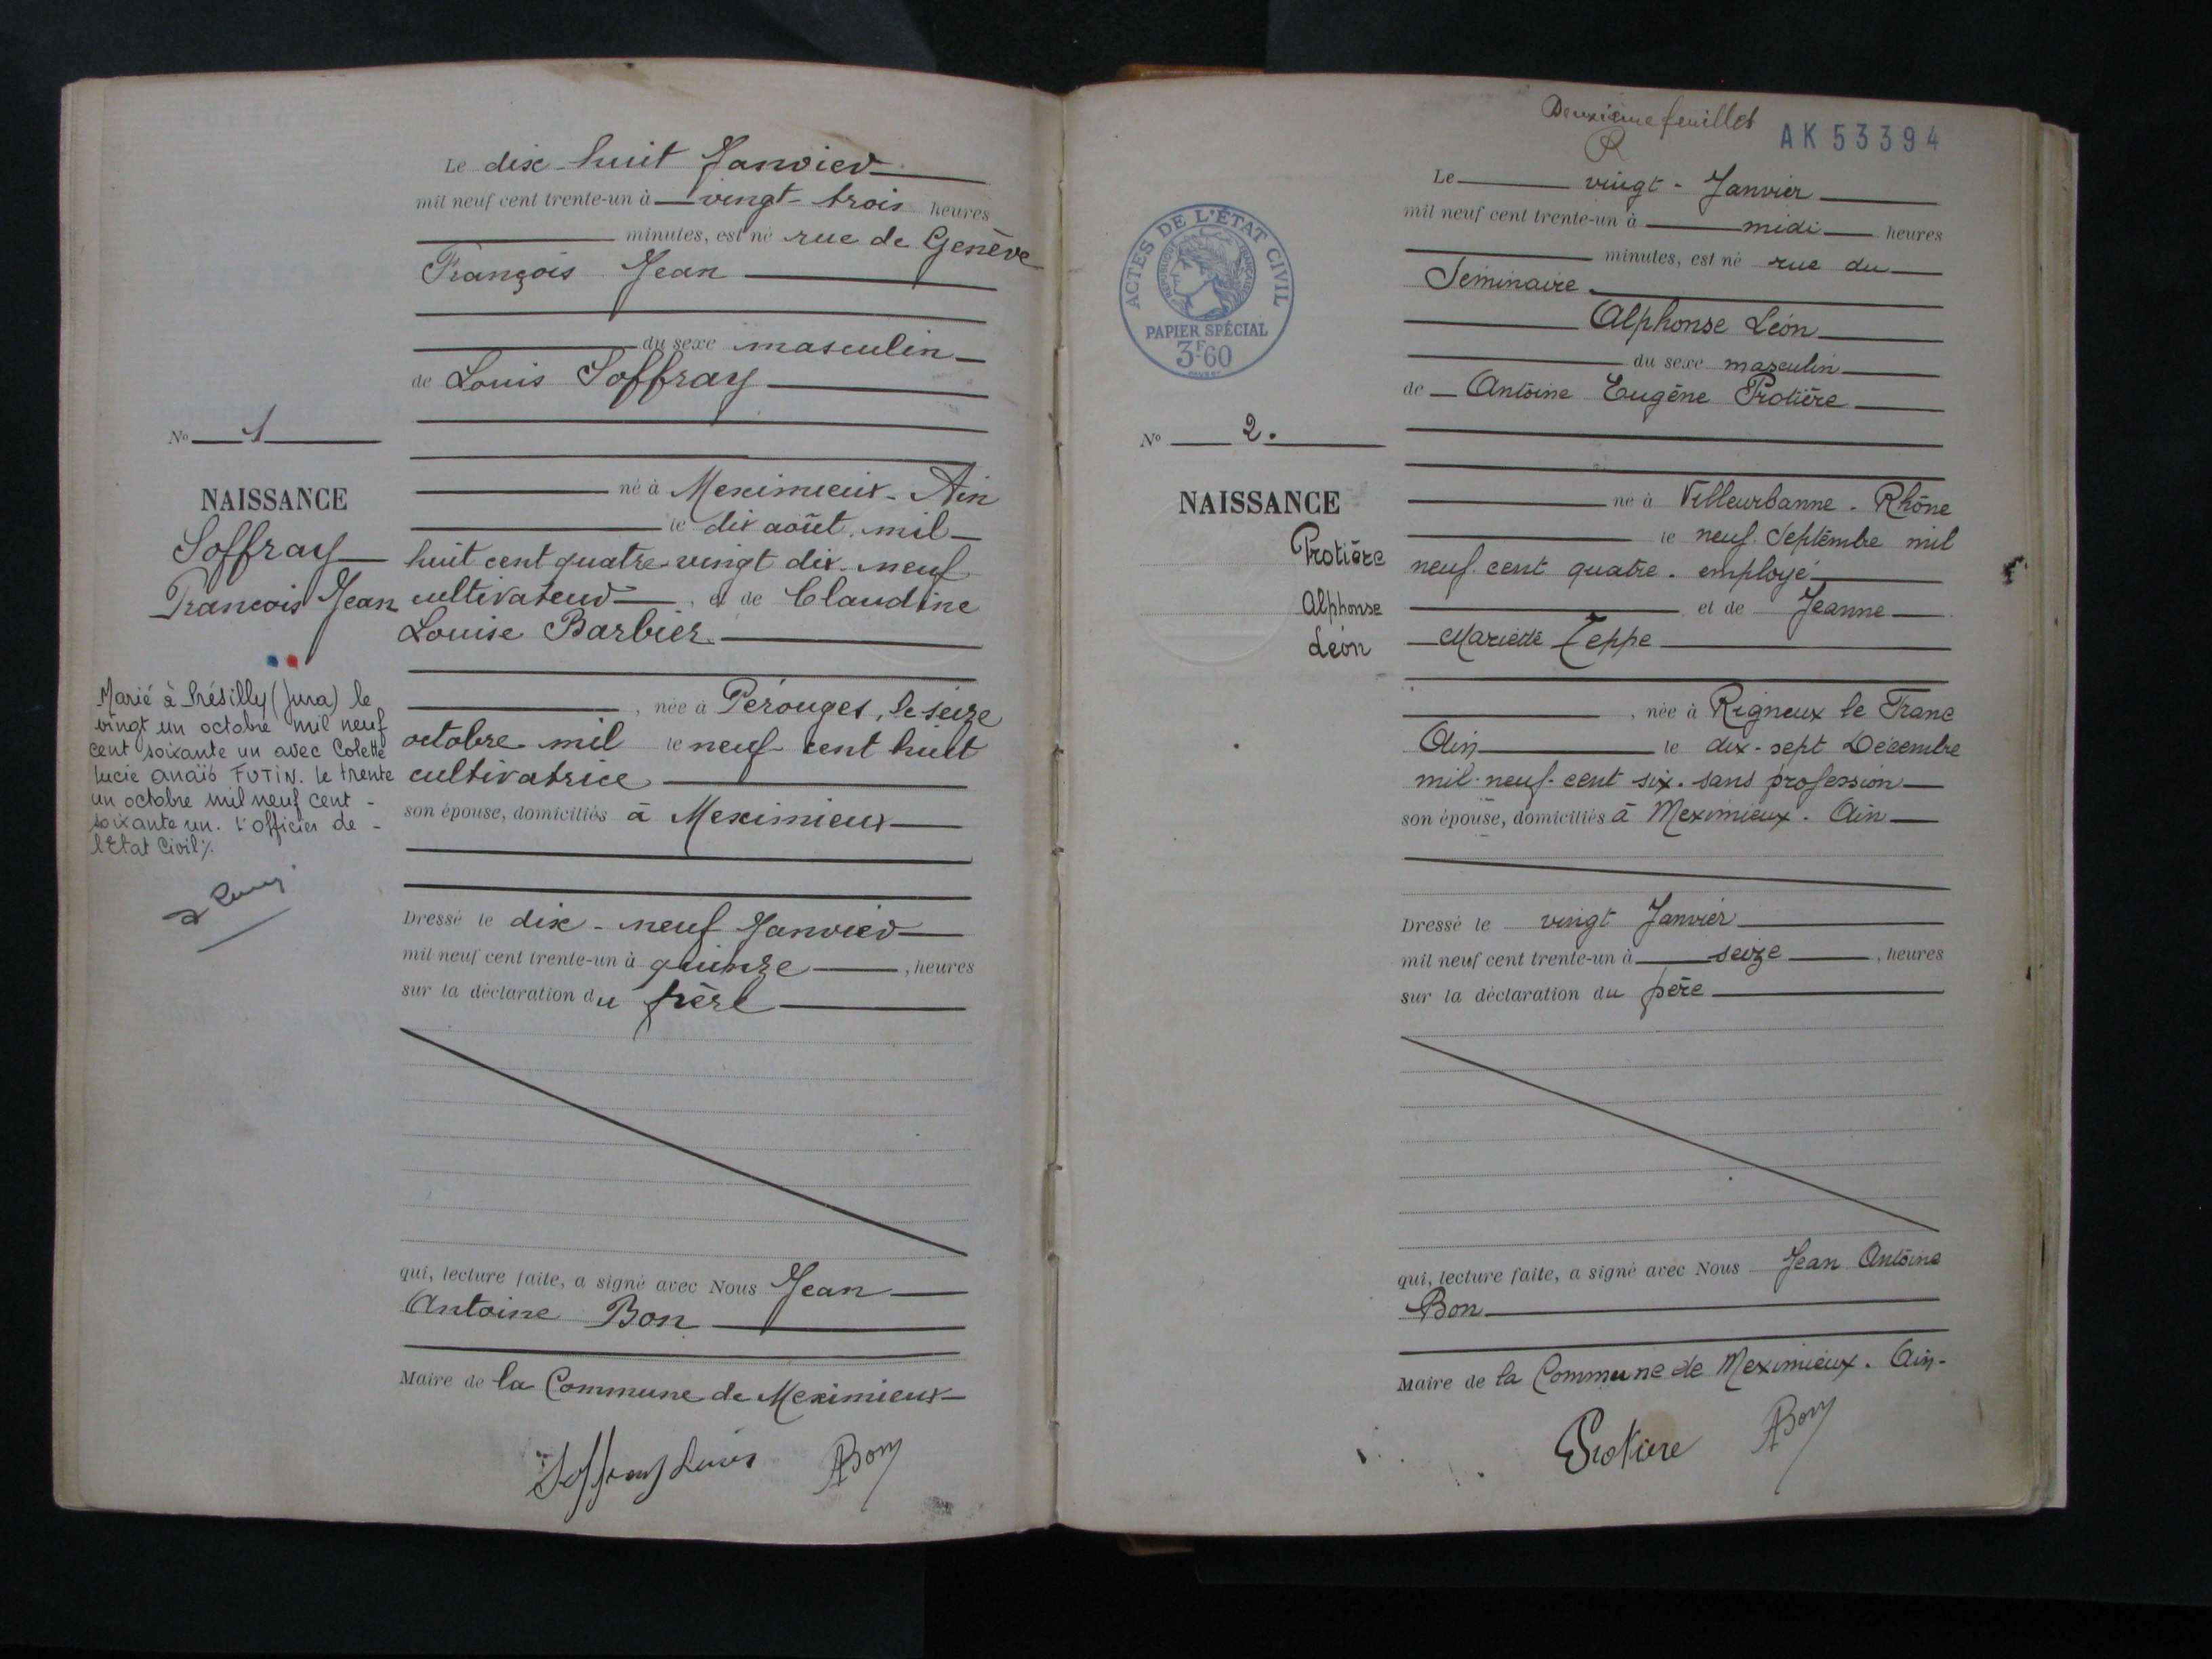 Le dix-huit Janvier
mil neuf cent trente-un à vingt-trois heures
minutes, est né rue de Genève
François Jean
du sexe masculin
de Louis Soffray
No 1
né à Meximieux - Ain
NAISSANCE
le dix août mil
Soffray
huit cent quatre-vingt dix-neuf
François Jean
cultivateur, et de Claudine
Louise Barbier
Marié à Présilly (Jura) le
vingt un octobre mil neuf
cent soixante un avec Colette
Lucie Anaïs FUTIN. Le trente
un octobre mil neuf cent -
soixante un. L'officier de -
l'Etat Civil ./.
, née à Pérouges, le seize
octobre mil le neuf cent huit
cultivatrice
son épouse, domiciliés à Meximieux
Dressé le dix-neuf Janvier
mil neuf cent trente-un à quinze, heures
sur la déclaration du père
qui, lecture faite, a signé avec Nous Jean
Antoine Bon
Maire de la Commune de Meximieux
Soffray Louis ABon
Deuxième feuillet
AK 53394
Le vingt - Janvier
mil neuf cent trente-un à midi heures
minutes, est né rue du
Séminaire
ACTES DE L'ÉTAT CIVIL
RÉPUBLIQUE FRANÇAISE
PAPIER SPÉCIAL
3F60
Alphonse Léon
du sexe masculin
de Antoine Eugène Protière
No 2.
né à Villeurbanne - Rhône
NAISSANCE
le neuf Septembre mil
Protière
neuf cent quatre. employé
Alphonse
et de Jeanne
Léon
Mariette Teppe
, née à Rigneux le Franc
Ain le dix-sept Décembre
mil-neuf-cent six. sans profession
son épouse, domiciliés à Meximieux. Ain
Dressé le vingt Janvier
mil neuf cent trente-un à seize, heures
sur la déclaration du père
qui, lecture faite, a signé avec Nous Jean Antoine
Bon
Maire de la Commune de Meximieux. Ain-
Protière ABon